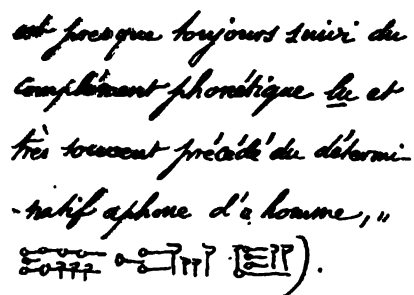 est presque toujours suivi du
complément phonétique lu et
très souvent précédé du détermi-
-natif aphone d'a homme, "
).